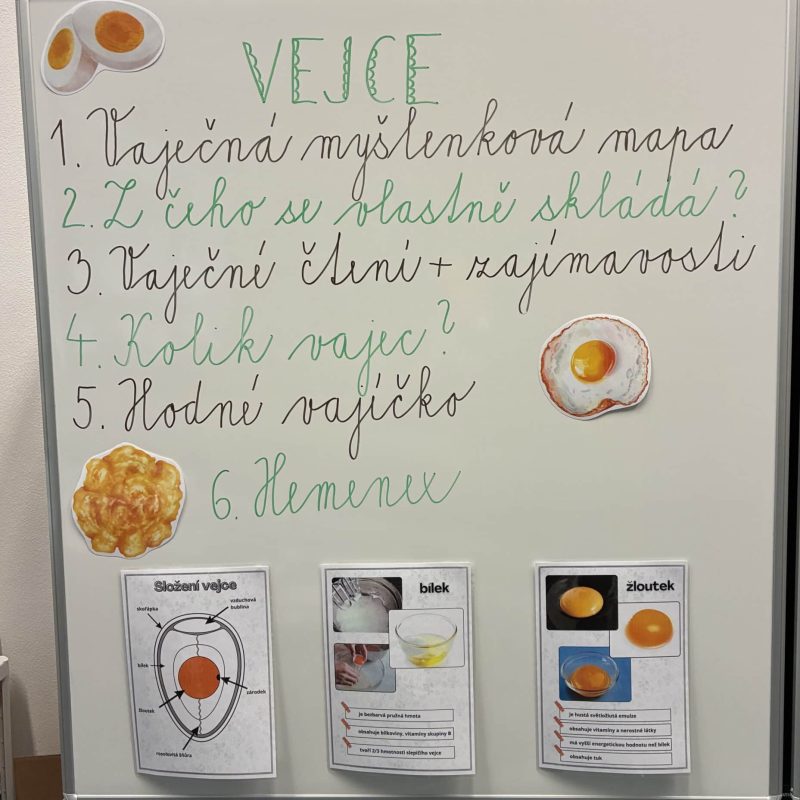 VEJCE
1. Vaječná myšlenková mapa
2. Z čeho se vlastně skládá?
3. Vaječné čtení + zajímavosti
4. Kolik vajec?
5. Hodné vajíčko
6. Hemenex
Složení vejce
skořápka
vzduchová
bublina
bílek
žloutek
zárodek
poutko
bílek
je bezbarvá pružná hmota
obsahuje bílkoviny, vitamíny skupiny B
tvoří 2/3 hmotnosti slepičího vejce
žloutek
je hustá světložlutá emulze
obsahuje vitamíny a nerostné látky
má vyšší energetickou hodnotu než bílek
obsahuje tuk